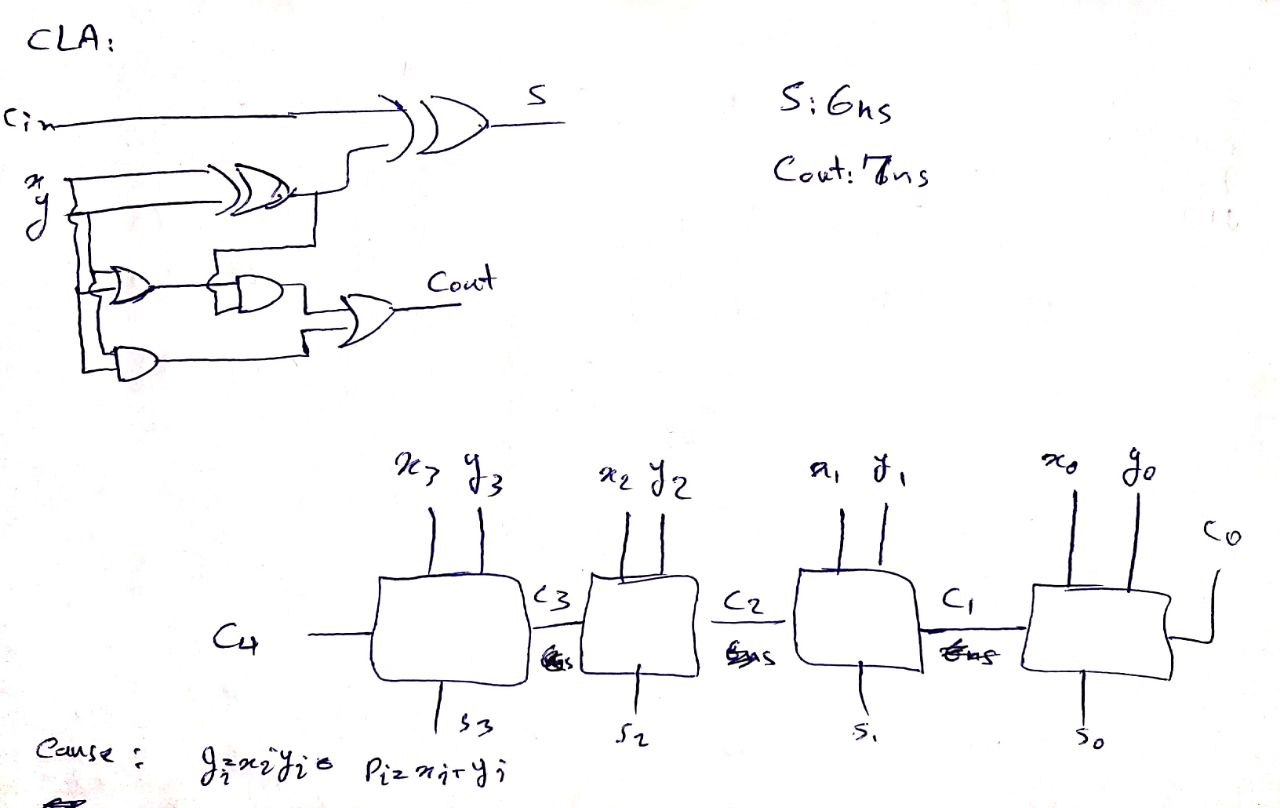 CLA:
Cin
S
S: 6ns
x
y
Cout: 7ns
Cout
x3 y3 x2 y2 x1 y1 x0 y0
C0
C4 C3 C2 C1
S3 S2 S1 S0
Cause: gi=xiyi Pi=xi+yi